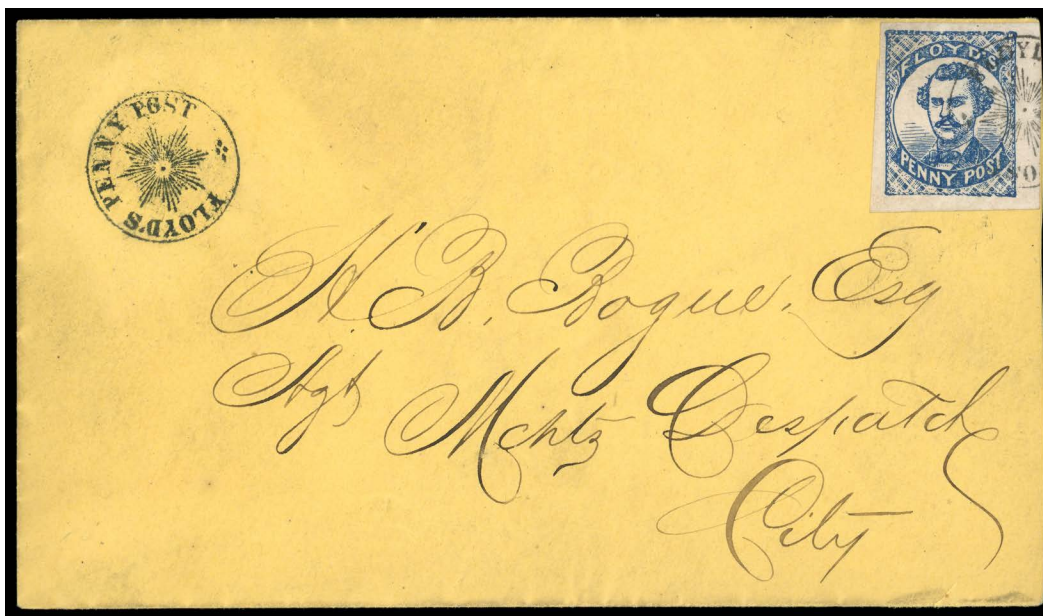 FLOYD'S PENNY POST
FLOYD'S
PENNY POST
H. B. Bogue. Esq
Agt Mchts Despatch
City